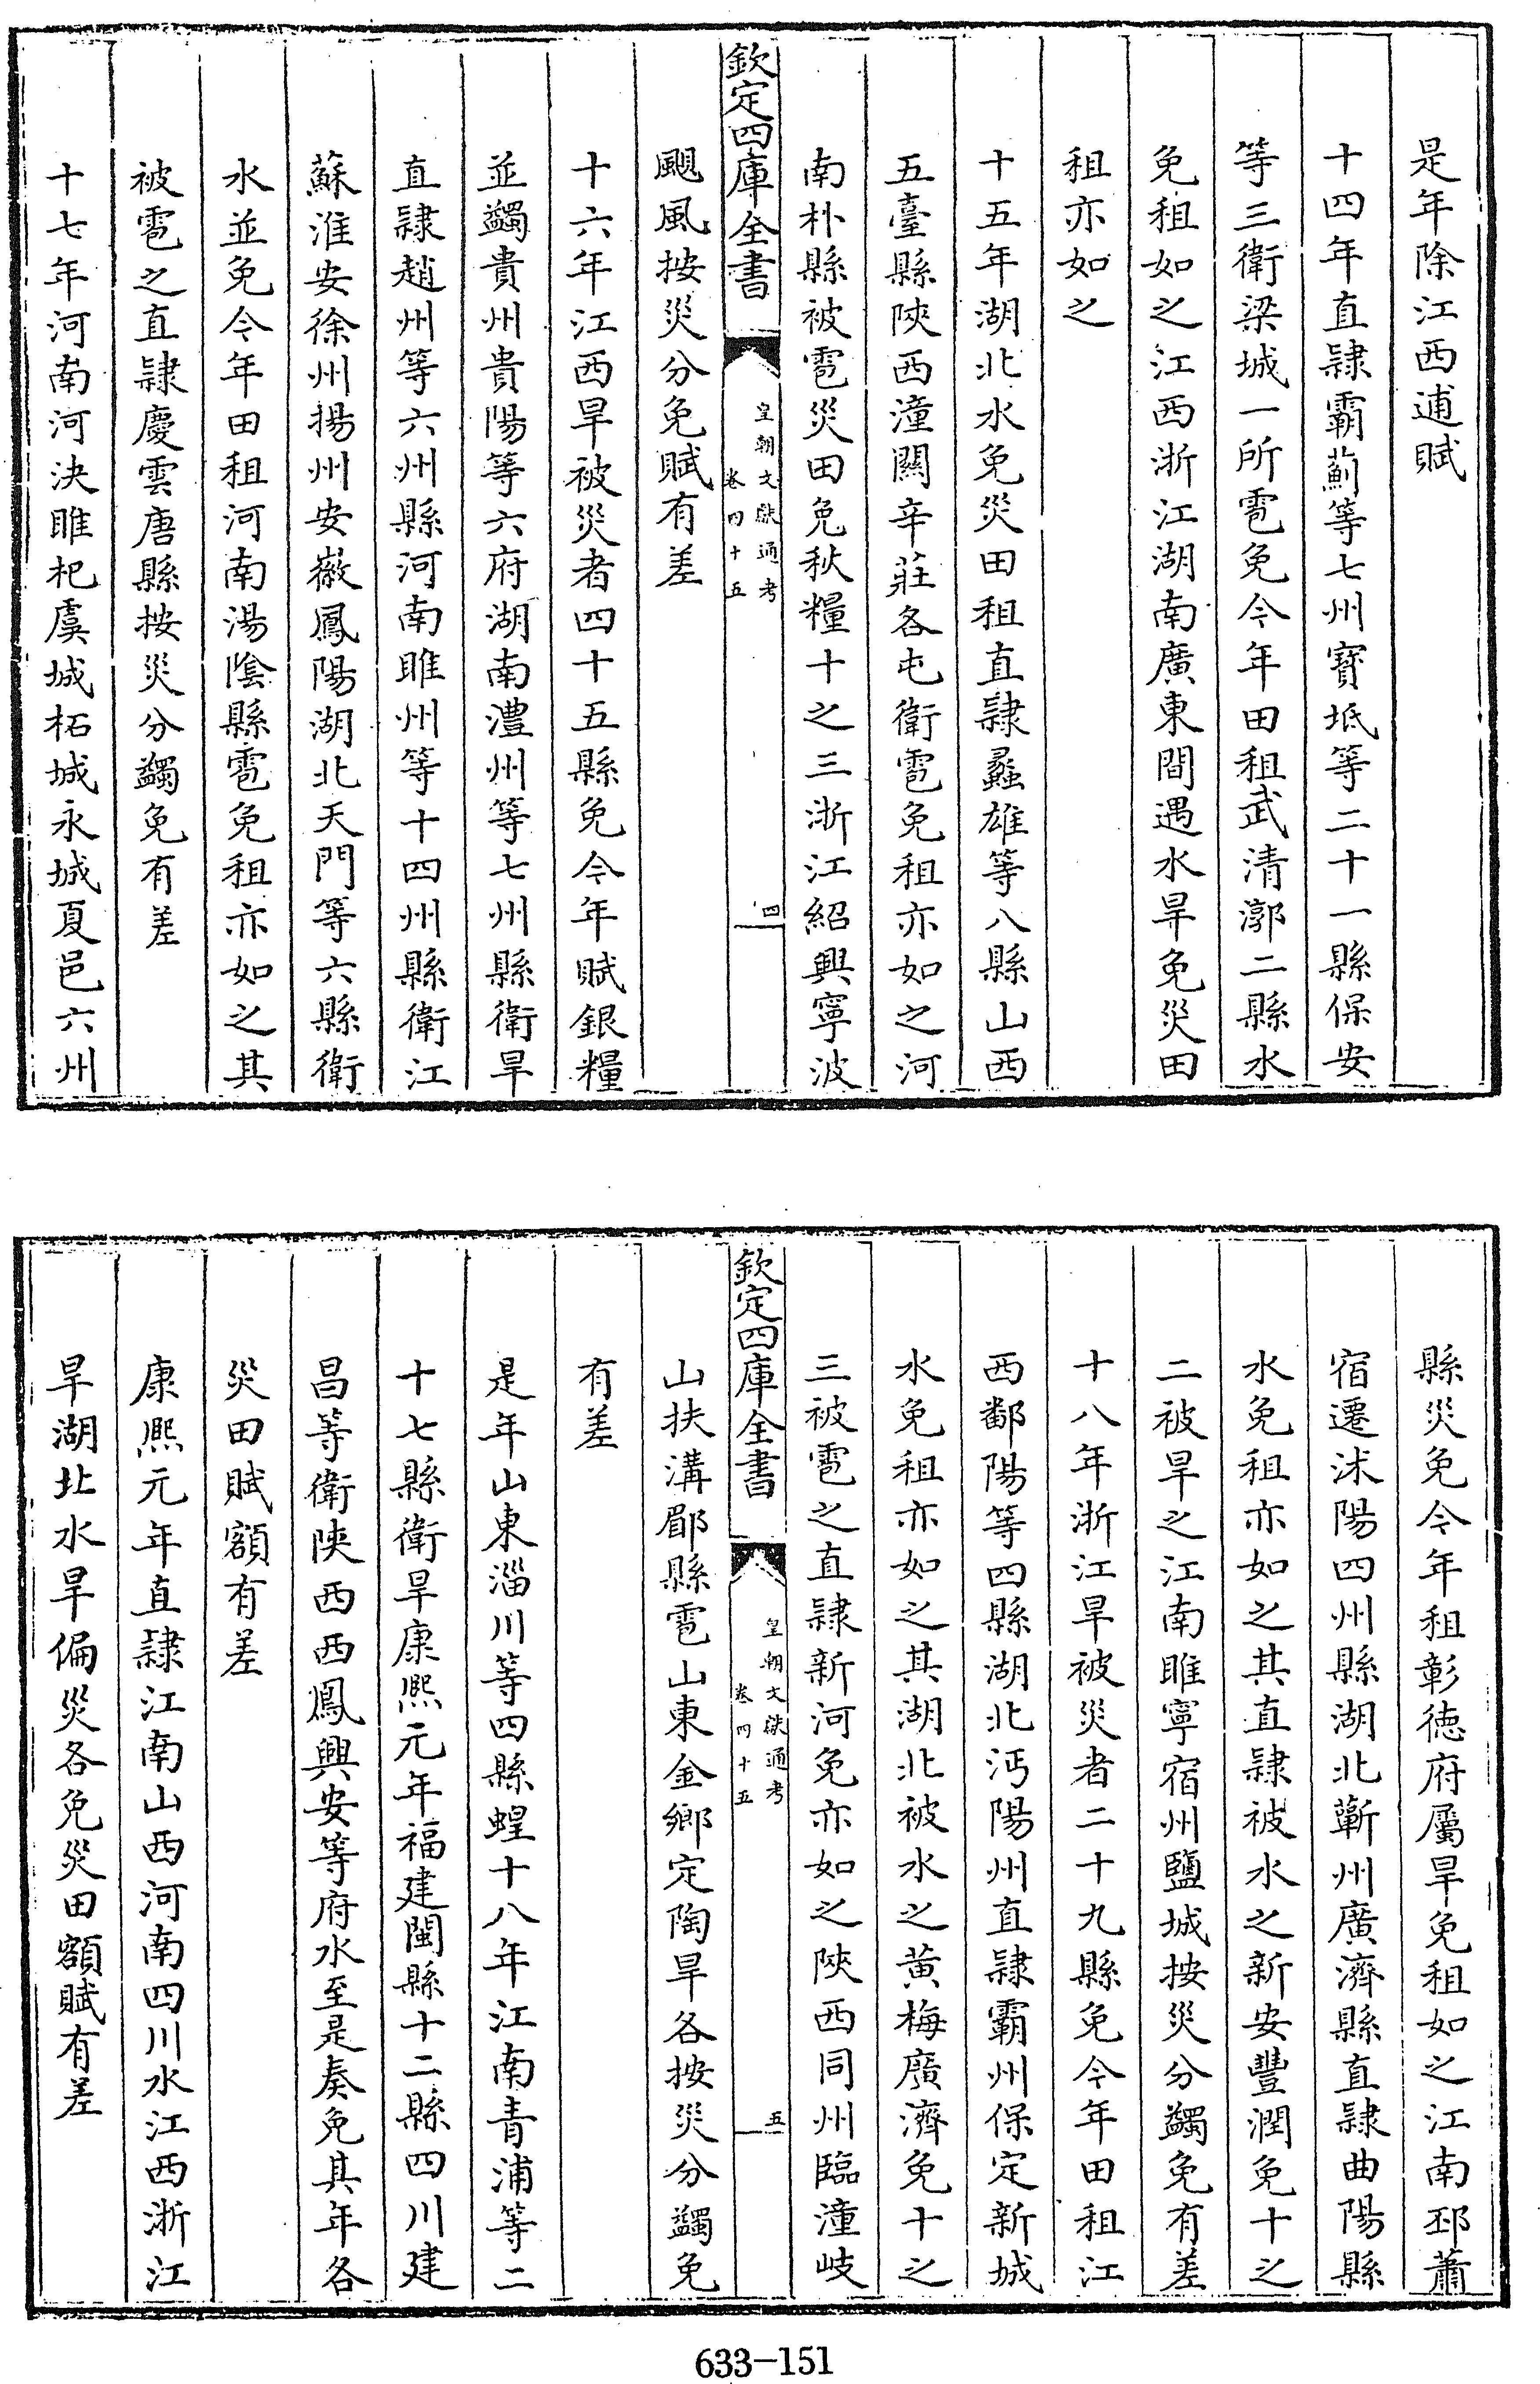 是年除江西逋賦
十四年直隸霸薊等七州寶坻等二十一縣保安
等三衛梁城一所雹免今年田租武清漷二縣水
免租如之江西浙江湖南廣東間遇水旱免災田
租亦如之
十五年湖北水免災田租直隸蠡雄等八縣山西
五臺縣陜西潼關辛莊各屯衛雹免租亦如之河
南朴縣被雹災田免秋糧十之三浙江紹興寧波
欽定四庫全書
皇朝文獻通考
卷四十五
四
颶風按災分免賦有差
十六年江西旱被災者四十五縣免今年賦銀糧
並蠲貴州貴陽等六府湖南澧州等七州縣衛旱
直隸趙州等六州縣河南睢州等十四州縣衛江
蘇淮安徐州揚州安徽鳳陽湖北天門等六縣衛
水並免今年田租河南湯陰縣雹免租亦如之其
被雹之直隸慶雲唐縣按災分蠲免有差
十七年河南河決睢杞虞城柘城永城夏邑六州
縣災免今年租彰德府屬旱免租如之江南邳蕭
宿遷沭陽四州縣湖北蘄州廣濟縣直隸曲陽縣
水免租亦如之其直隸被水之新安豐潤免十之
二被旱之江南睢寧宿州鹽城按災分蠲免有差
十八年浙江旱被災者二十九縣免今年田租江
西鄱陽等四縣湖北沔陽州直隸霸州保定新城
水免租亦如之其湖北被水之黃梅廣濟免十之
三被雹之直隸新河免亦如之陜西同州臨潼岐
欽定四庫全書
皇朝文獻通考
卷四十五
五
山扶溝郿縣雹山東金鄉定陶旱各按災分蠲免
有差
是年山東淄川等四縣蝗十八年江南青浦等二
十七縣衛旱康熙元年福建閩縣十二縣四川建
昌等衛陜西西鳳興安等府水至是奏免其年各
災田賦額有差
康熙元年直隸江南山西河南四川水江西浙江
旱湖北水旱偏災各免災田額賦有差
633-151